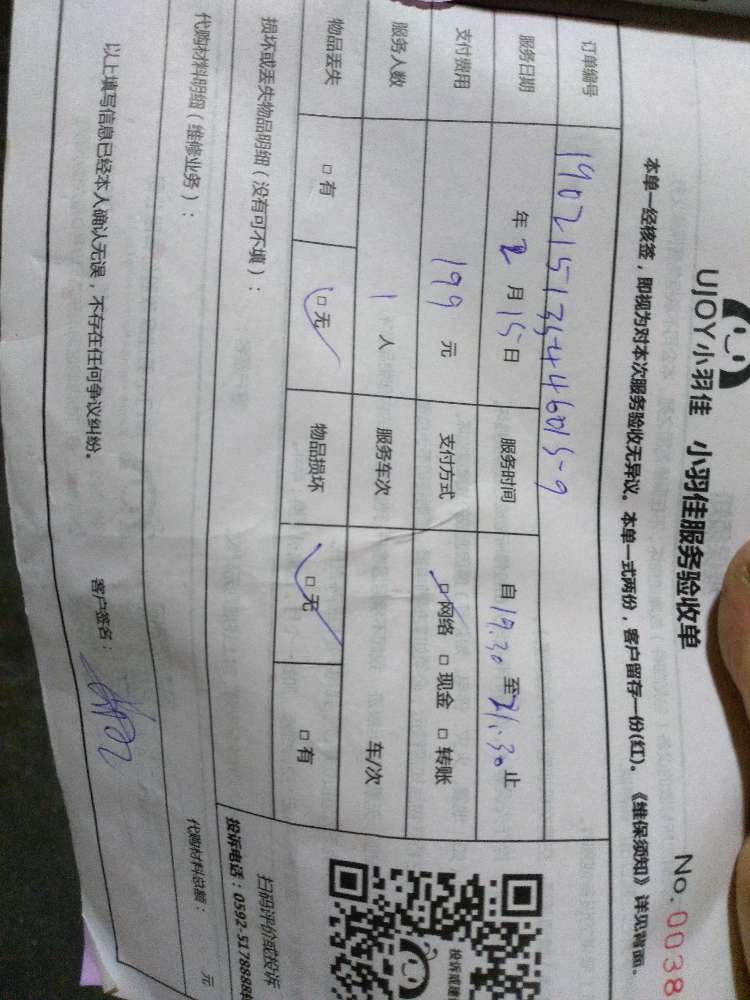 UJOY小羽佳 小羽佳服务验收单 No.0038
本单一经核签，即视为对本次服务验收无异议。本单一式两份，客户留存一份(红)。《维保须知》详见背面。
订单编号 190215135446015-9
服务日期 年 2 月 15 日 服务时间 自 19:30 至 21:30 止
支付费用 199 元 支付方式 □ 网络 □ 现金 □ 转账
服务人数 1 人 服务车次 车/次
物品丢失 □ 有 □ 无 物品损坏 □ 无 □ 有
损坏或丢失物品明细（没有可不填）：
代购材料明细（维修业务）：
代购材料总额： 元
以上填写信息已经本人确认无误，不存在任何争议纠纷。 客户签名：
投诉或建
扫码评价或投诉
投诉电话：0592-5178888